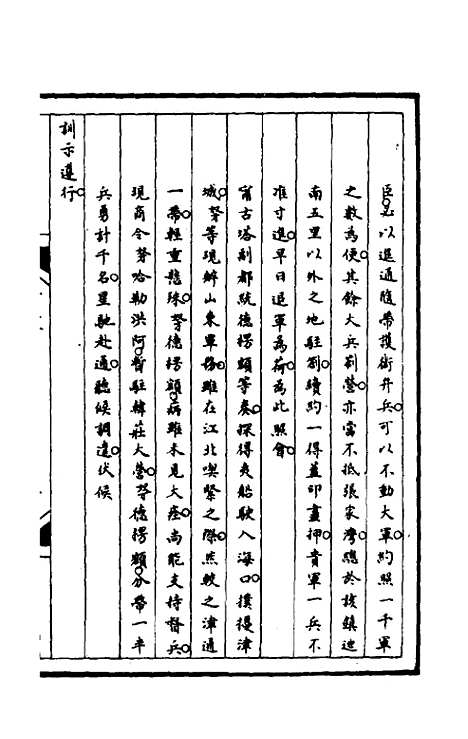 臣並以退通隨帶護衛弁兵可以不動大軍約照一千軍
之數為便其餘大兵劄營亦當不抵張家灣總於該鎮迤
南五里以外之地駐劄續約一得蓋印畫押貴軍一兵不
准寸進早日退軍為荷為此照會
甯古塔副都統德楞額等奏探得夷船駛入海口撲撓津
城努等現辦山東軍務雖在江北喫緊之際然較之津通
一帶輕重懸殊努德楞額病雖未見大痊尚能支持督兵
現商令努哈勒洪阿暫駐韓莊大營努德楞額分帶一半
兵勇計千名星馳赴通聽候調遣伏候
訓示遵行